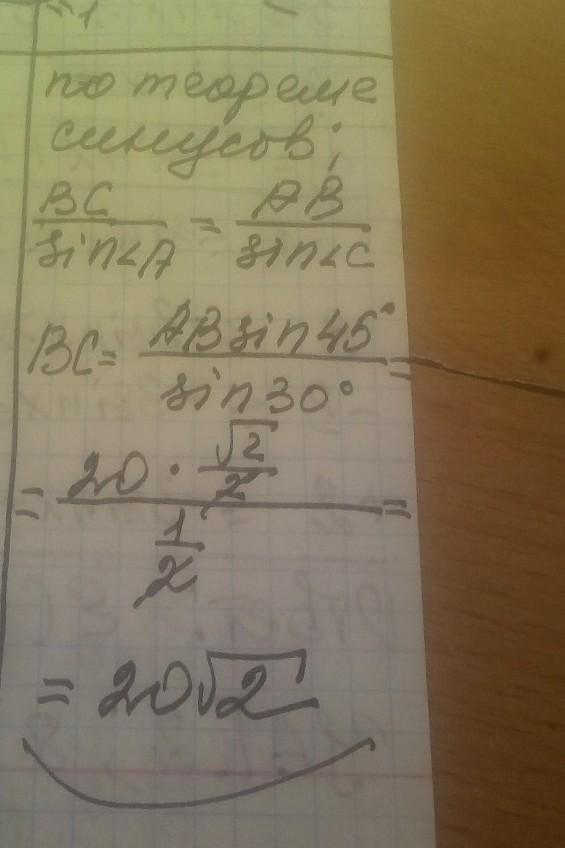 по теореме
синусов;
BC/sin∠A = AB/sin∠C
BC = AB sin 45°/sin 30° =
= 20 · √2/2 / 1/2 =
= 20√2